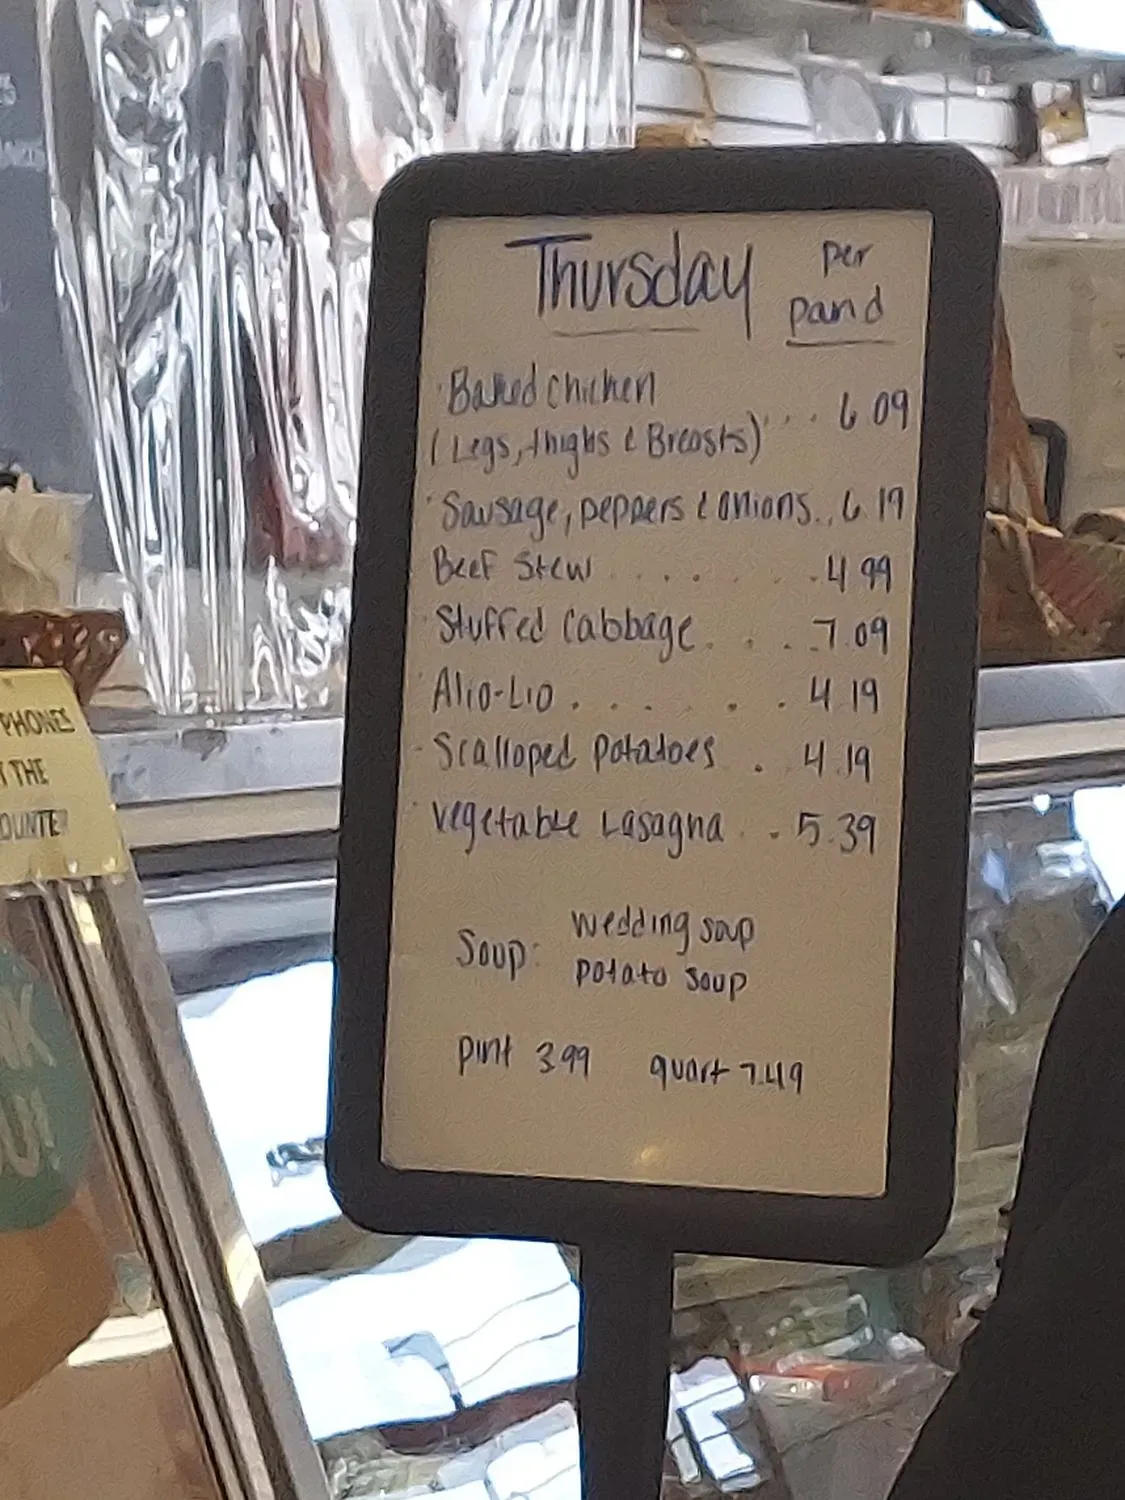 Thursday per pound
Baked chicken
(Legs, thighs & Breasts) ... 6.09
Sausage, peppers & onions.. 6.19
Beef Stew ...... 4.99
Stuffed Cabbage .... 7.09
Alio-Lio ...... 4.19
Scalloped potatoes .. 4.19
vegetable Lasagna .. 5.39
Soup: wedding soup
potato soup
pint 3.99 quart 7.49
PHONES
THE